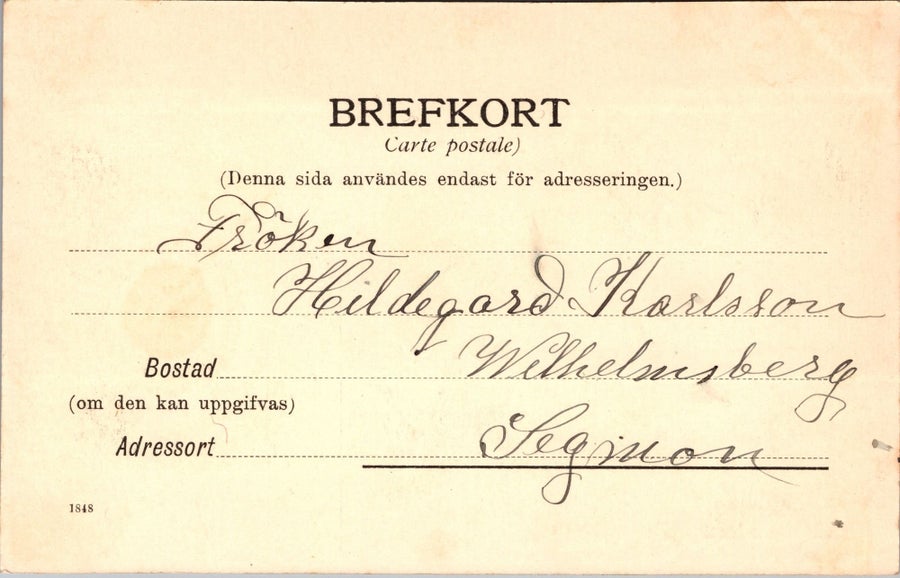 BREFKORT
Carte postale)
(Denna sida användes endast för adresseringen.)
Fröken
Hildegard Karlsson
Bostad Wilhelmsberg
(om den kan uppgifvas)
Adressort Segmon
1848